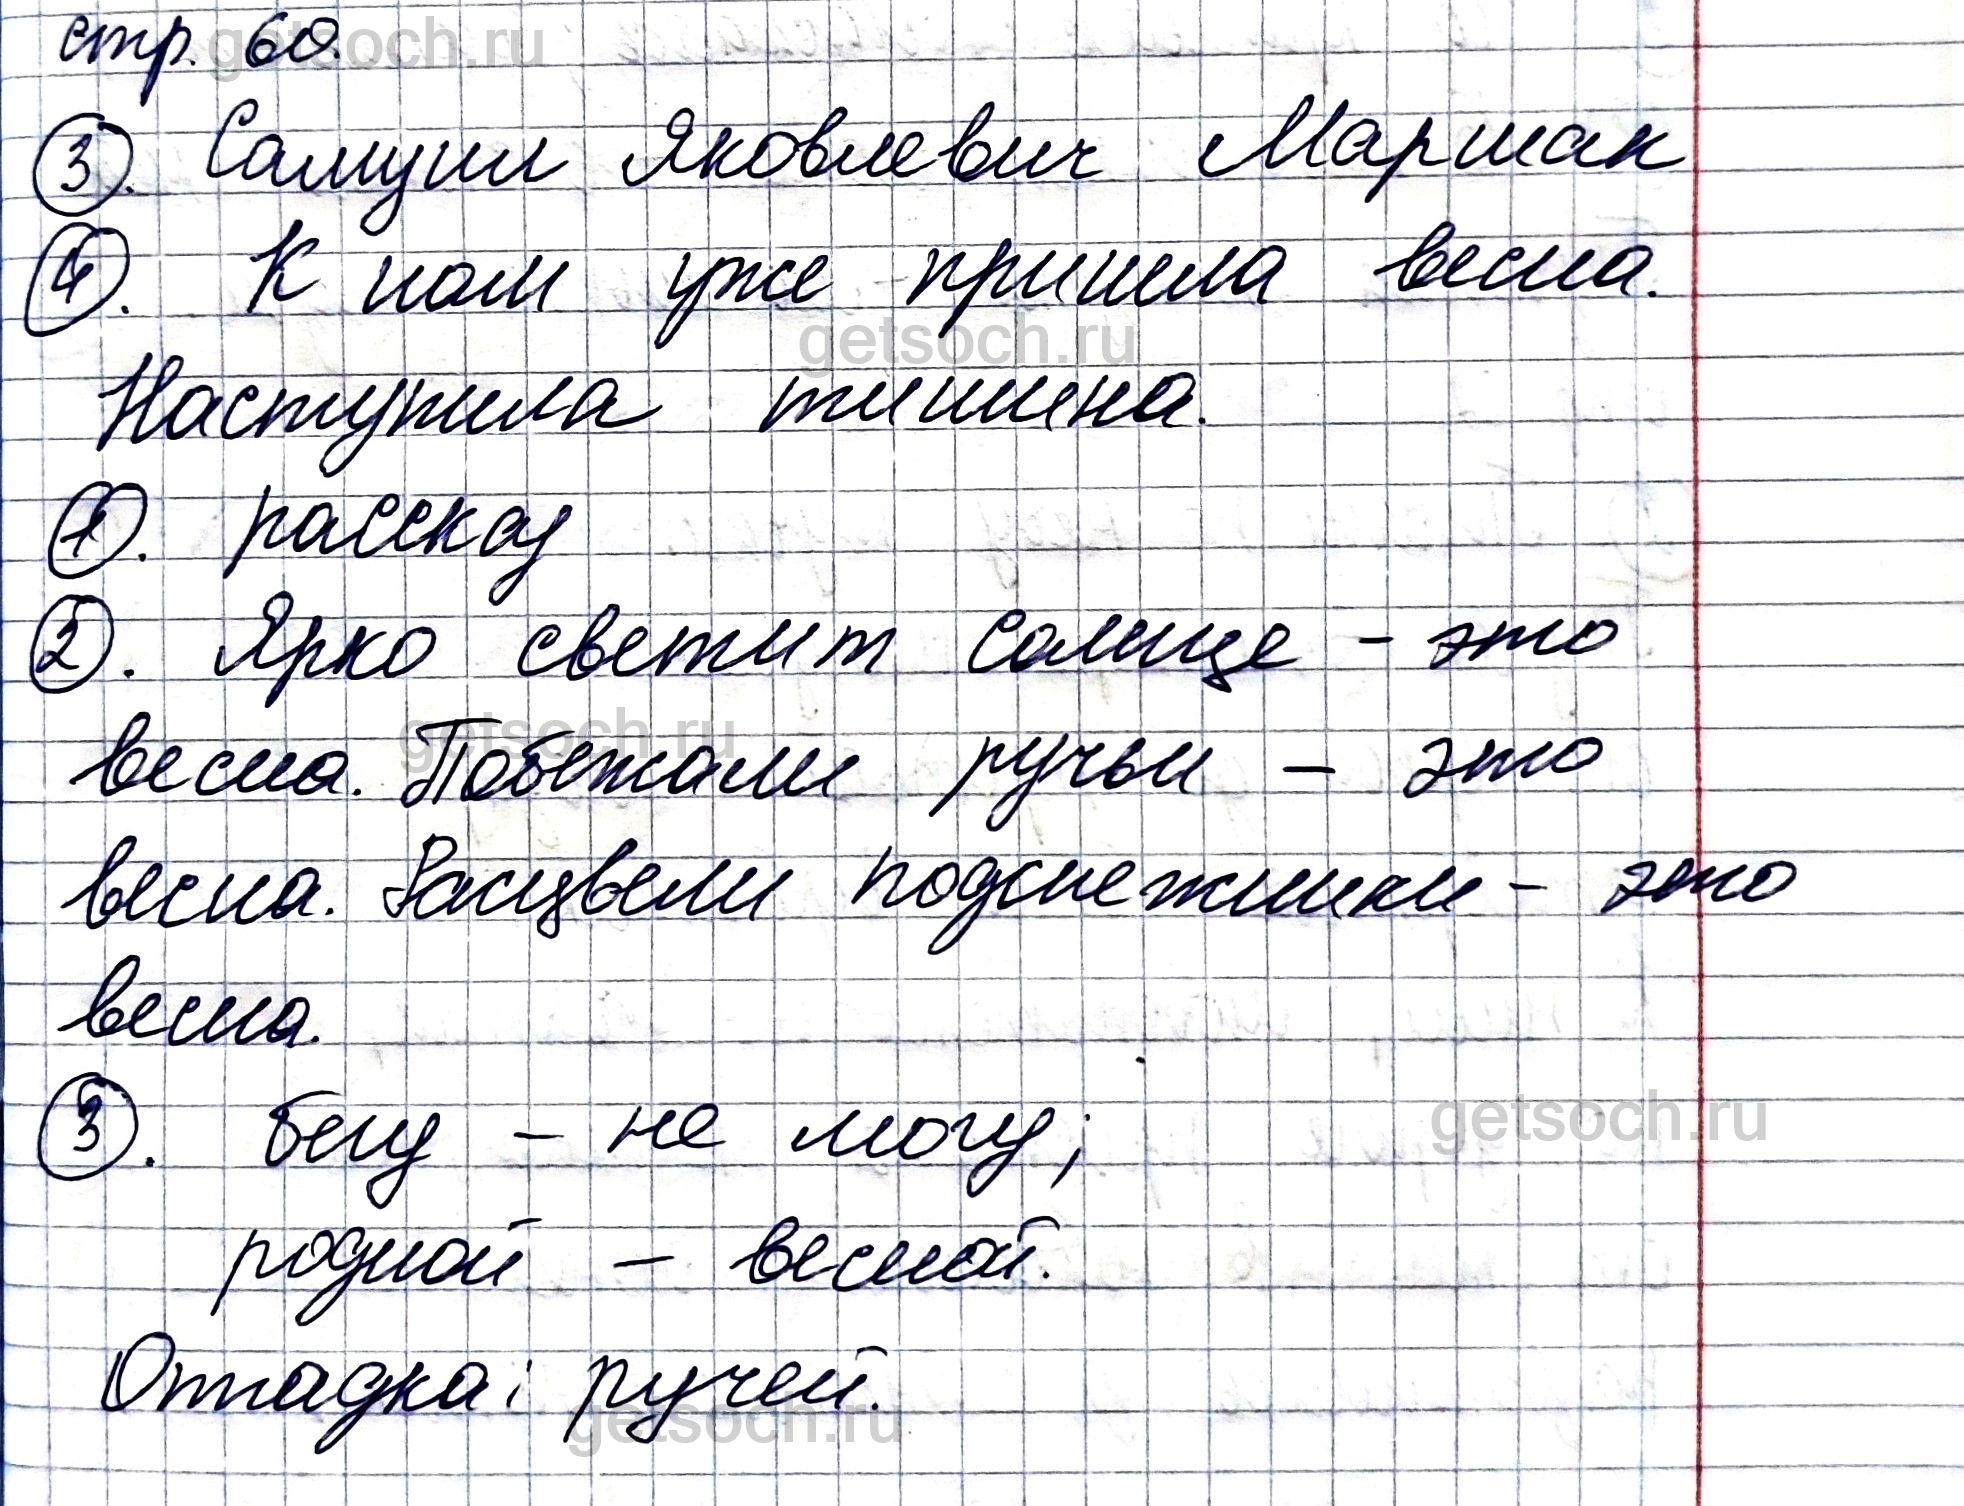 стр. 60.
3. Самуил Яковлевич Маршак
4. К нам уже пришла весна.
Наступила тишина.
1. рассказ
2. Ярко светит солнце - это
весна. Побежали ручьи - это
весна. Расцвели подснежники - это
весна.
3. бегу - не могу;
родной - весной.
Отгадка: ручей.
getsoch.ru
getsoch.ru
getsoch.ru
getsoch.ru
getsoch.ru